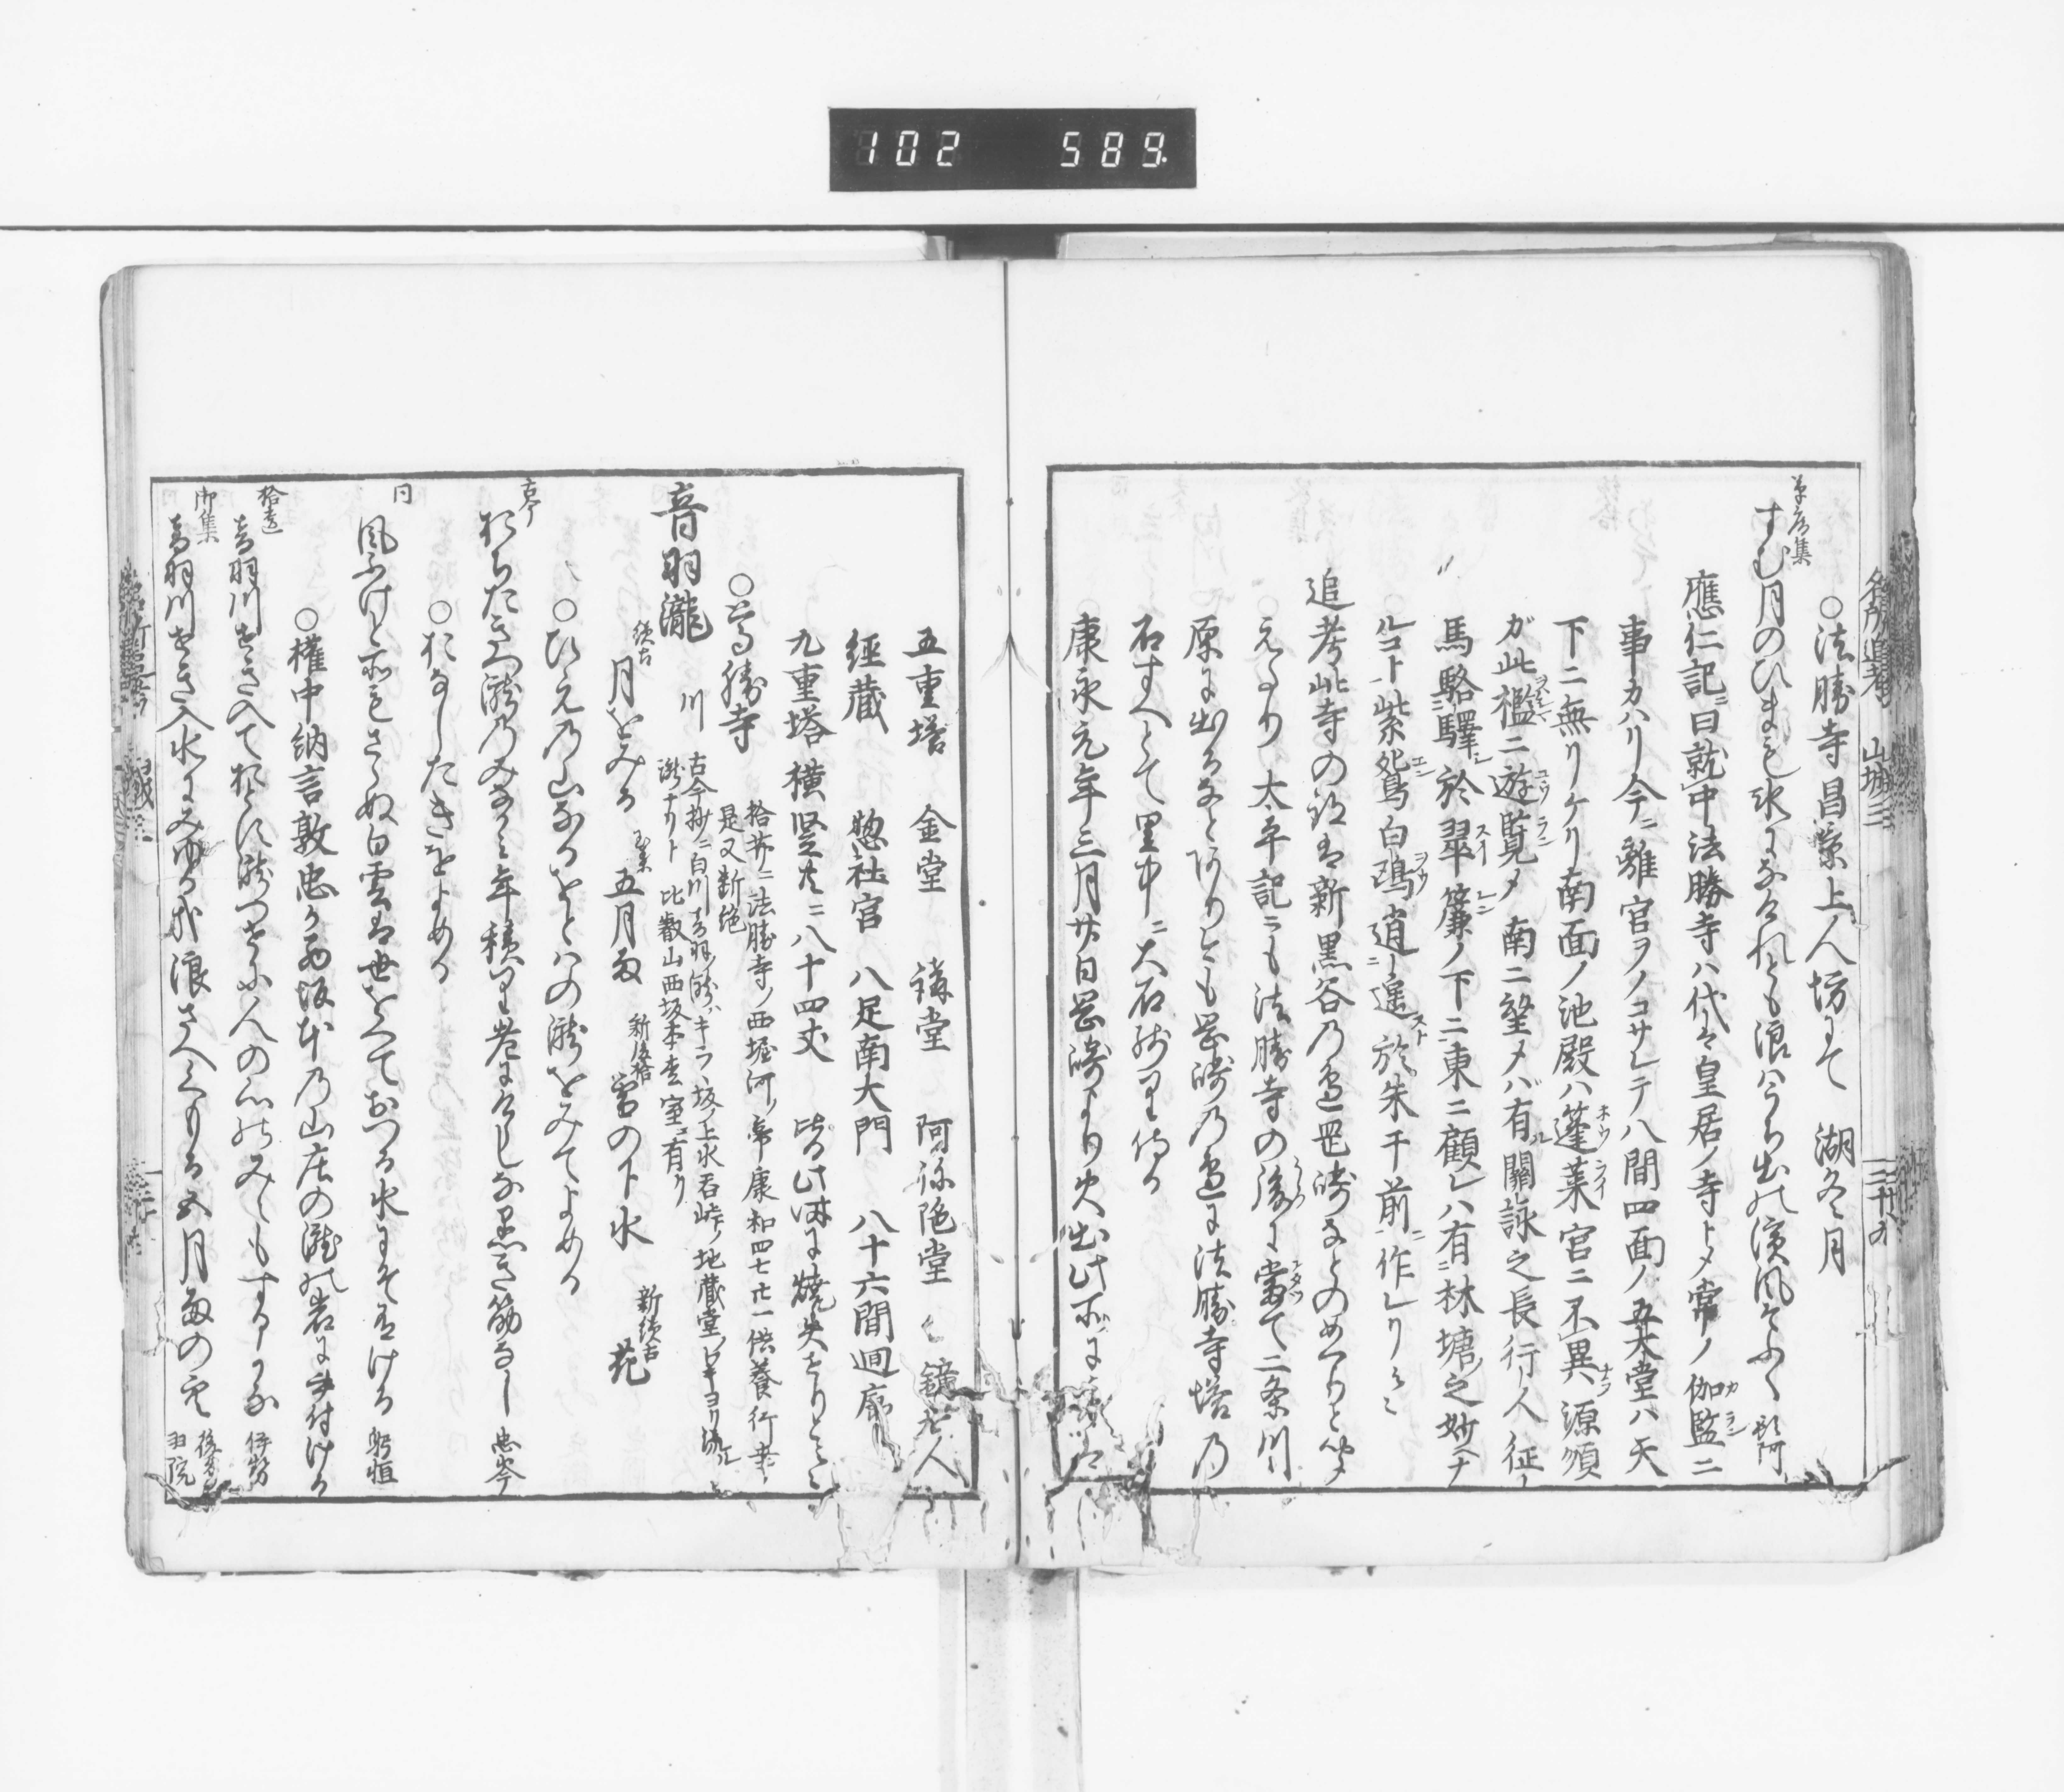 102 589.
名所追考 山城三 三十九
草庵集
○法勝寺昌業上人坊にて 湖冬月
すむ月のひまも氷になりぬれとも浪はうち出の濱風そふく 頓阿
應仁記ニ曰就中法勝寺ハ代々皇居ノ寺トメ常ノ伽藍ニ
事カハリ今ニ離宮ヲノコサレテ八間四面ノ五大堂ハ天
下ニ無リケリ南面ノ池殿ハ蓬莱宮ニ不異源順
ガ此檻ニ遊覧メ南ニ望メバ有關詠之長行人征
馬駱驛於翠簾ノ下ニ東ニ顧レハ有林塘之妙ヘナ
ルコト紫鴛白鴎逍遥於朱干前ニ作レリ云々
追考此寺の跡は新黒谷乃邊岡崎なとのめくりと
えたり太平記にも法勝寺の後に當て二条川
原に出るなとありとも岡崎乃邊に法勝寺塔乃
石すへとて里中ニ大石残り侍る
康永元年三月廿日岡崎より火出此所に
五重塔 金堂 講堂 阿弥陀堂 鐘
經蔵 惣社官 八足南大門 八十六間廻廊
九重塔横竪共ニ八十四丈 皆此時に焼失せりと云々
○尊勝寺 拾芥ニ法勝寺ノ西堀河ノ帝康和四七廿一供養行幸
是又断絶
音羽瀧 川 古今抄ニ白川音羽ノ瀧ハキラヽ坂ノ上水呑峠ノ地蔵堂ノワキヨリ
瀧ナリト 比叡山西坂本 有リ
續古 月をみる 玉葉 五月雨 新後拾 雪の下水 新續古 花
○ひえの山なるをとはの瀧をみてよめる
古今 おちたきつ瀧乃みなかみ年積り老にけらしな黒き筋なし 忠岑
○おなしたきをよめる
同 風ふけと所もさらぬ白雲は世をへておつる水にそ有ける 躬恒
○權中納言敦忠か西坂本乃山庄の瀧の岩に書付ける
拾遺 音羽川せき入ておとす瀧つせに人の心のみえもするかな 伊勢
御集 音羽川せき入水にみゆる哉浪さへくもる五月雨の空 後鳥羽院